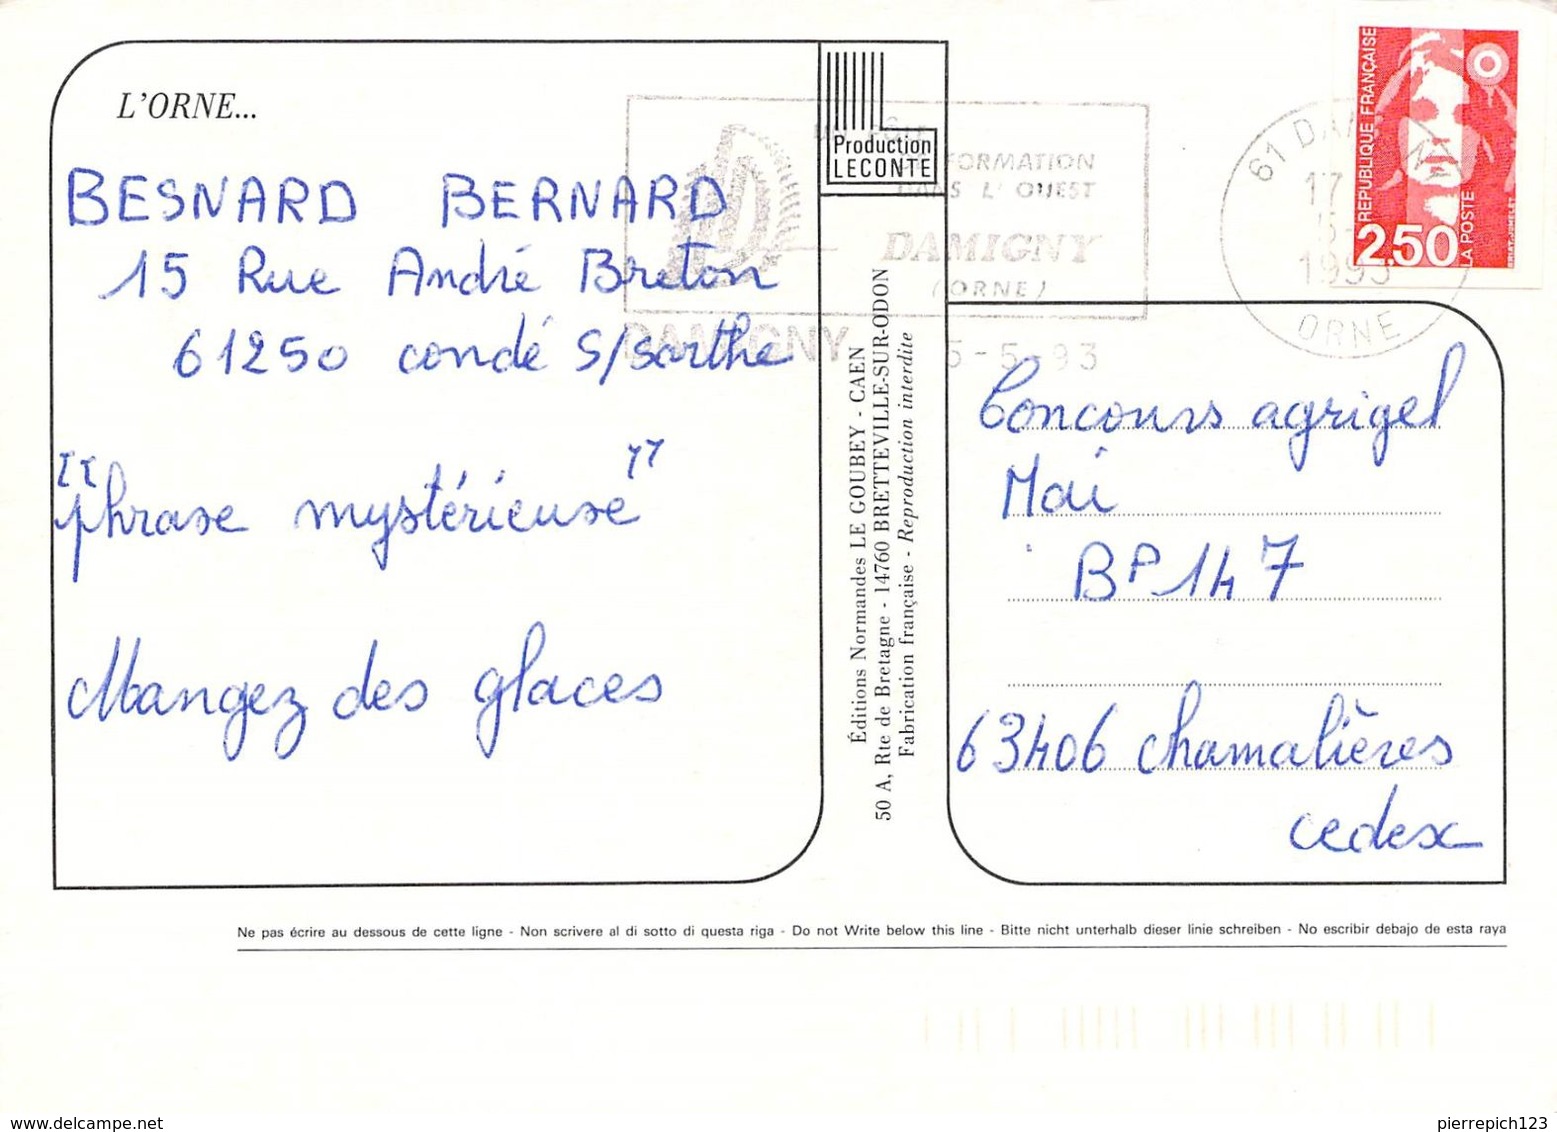 L'ORNE...
BESNARD BERNARD
15 Rue André Breton
61250 condé S/sarthe
"phrase mystérieuse"
Mangez des glaces
Production
LECONTE
FORMATION
DANS L'OUEST
DAMIGNY
(ORNE)
DAMIGNY
5-5 93
Éditions Normandes LE GOUBEY - CAEN
50 A, Rte de Bretagne - 14760 BRETTEVILLE-SUR-ODON
Fabrication française - Reproduction interdite
61 DAMIGNY
17
1993
ORNE
REPUBLIQUE FRANÇAISE
2,50
LA POSTE
Concours agrigel
Mai
BP 147
63406 chamalières
cedex
Ne pas écrire au dessous de cette ligne - Non scrivere al di sotto di questa riga - Do not Write below this line - Bitte nicht unterhalb dieser linie schreiben - No escribir debajo de esta raya
delcampe.net
pierrepich123